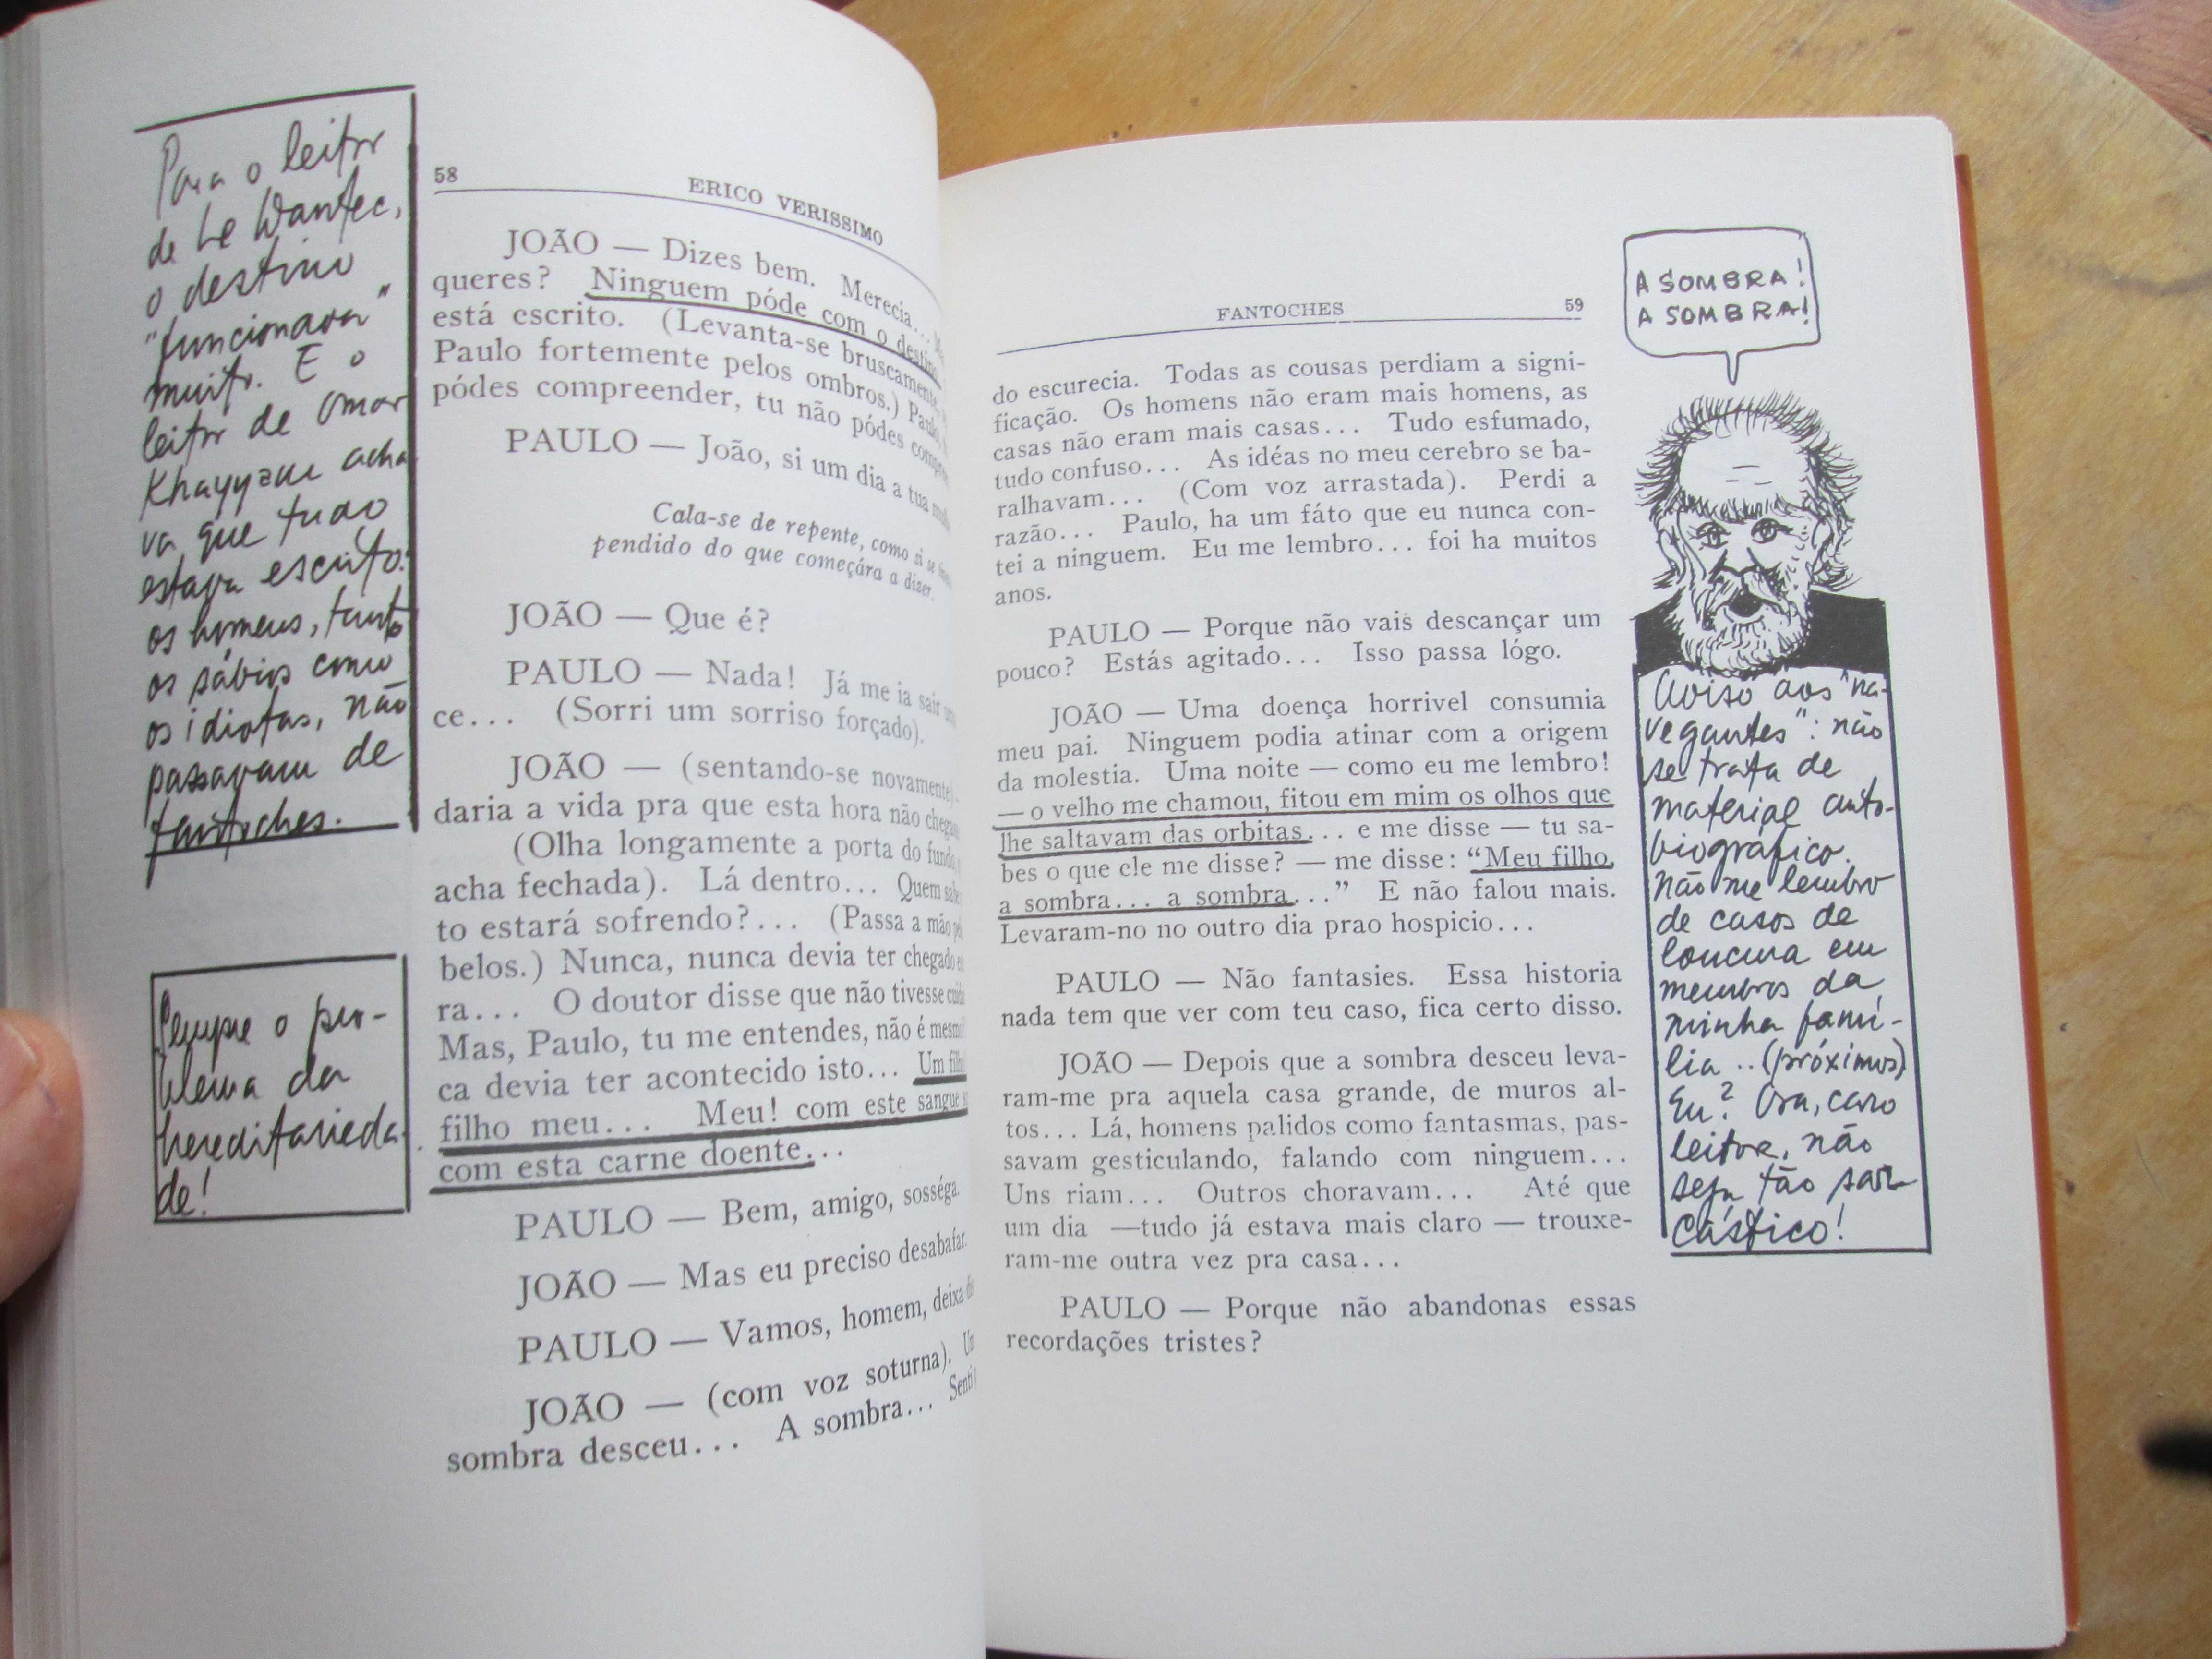 Para o leitor
de Le Dantec,
o destino
"funcionava"
muito. E o
leitor de Omar
Khayyam acha
va que tudo
estava escrito:
os homens, tanto
os sábios como
os idiotas, não
passavam de
fantoches.
Sempre o pro-
blema da
hereditarieda-
de!
58
ERICO VERISSIMO
JOÃO — Dizes bem. Merecia...
queres? Ninguem póde com o destino
está escrito. (Levanta-se bruscamente,
Paulo fortemente pelos ombros.) Paulo,
pódes compreender, tu não pódes
PAULO — João, si um dia a tua
Cala-se de repente, como si se
pendido do que começára a dizer.
JOÃO — Que é?
PAULO — Nada! Já me ia sair
ce... (Sorri um sorriso forçado).
JOÃO — (sentando-se novamente)
daria a vida pra que esta hora não
(Olha longamente a porta do fundo,
acha fechada). Lá dentro... Quem
to estará sofrendo?... (Passa a mão
belos.) Nunca, nunca devia ter chegado
ra... O doutor disse que não tivesse
Mas, Paulo, tu me entendes, não é
ca devia ter acontecido isto... Um
filho meu... Meu! com este sangue
com esta carne doente...
PAULO — Bem, amigo, sosséga.
JOÃO — Mas eu preciso desabafar.
PAULO — Vamos, homem, deixa
JOÃO — (com voz soturna).
sombra desceu... A sombra...
FANTOCHES
59
do escurecia. Todas as cousas perdiam a signi-
ficação. Os homens não eram mais homens, as
casas não eram mais casas... Tudo esfumado,
tudo confuso... As idéas no meu cerebro se ba-
ralhavam... (Com voz arrastada). Perdi a
razão... Paulo, ha um fáto que eu nunca con-
tei a ninguem. Eu me lembro... foi ha muitos
anos.
PAULO — Porque não vais descançar um
pouco? Estás agitado... Isso passa lógo.
JOÃO — Uma doença horrivel consumia
meu pai. Ninguem podia atinar com a origem
da molestia. Uma noite — como eu me lembro!
— o velho me chamou, fitou em mim os olhos que
lhe saltavam das orbitas... e me disse — tu sa-
bes o que ele me disse? — me disse: "Meu filho,
a sombra... a sombra..." E não falou mais.
Levaram-no no outro dia prao hospicio...
PAULO — Não fantasies. Essa historia
nada tem que ver com teu caso, fica certo disso.
JOÃO — Depois que a sombra desceu leva-
ram-me pra aquela casa grande, de muros al-
tos... Lá, homens palidos como fantasmas, pas-
savam gesticulando, falando com ninguem...
Uns riam... Outros choravam... Até que
um dia —tudo já estava mais claro — trouxe-
ram-me outra vez pra casa...
PAULO — Porque não abandonas essas
recordações tristes?
A SOMBRA!
A SOMBRA!
Aviso aos "na-
vegantes": não
se trata de
material auto-
biográfico.
Não me lembro
de casos de
loucura em
membros da
minha famí-
lia .. (próximos)
Eu? Ora, caro
leitor, não
seja tão sar-
cástico!